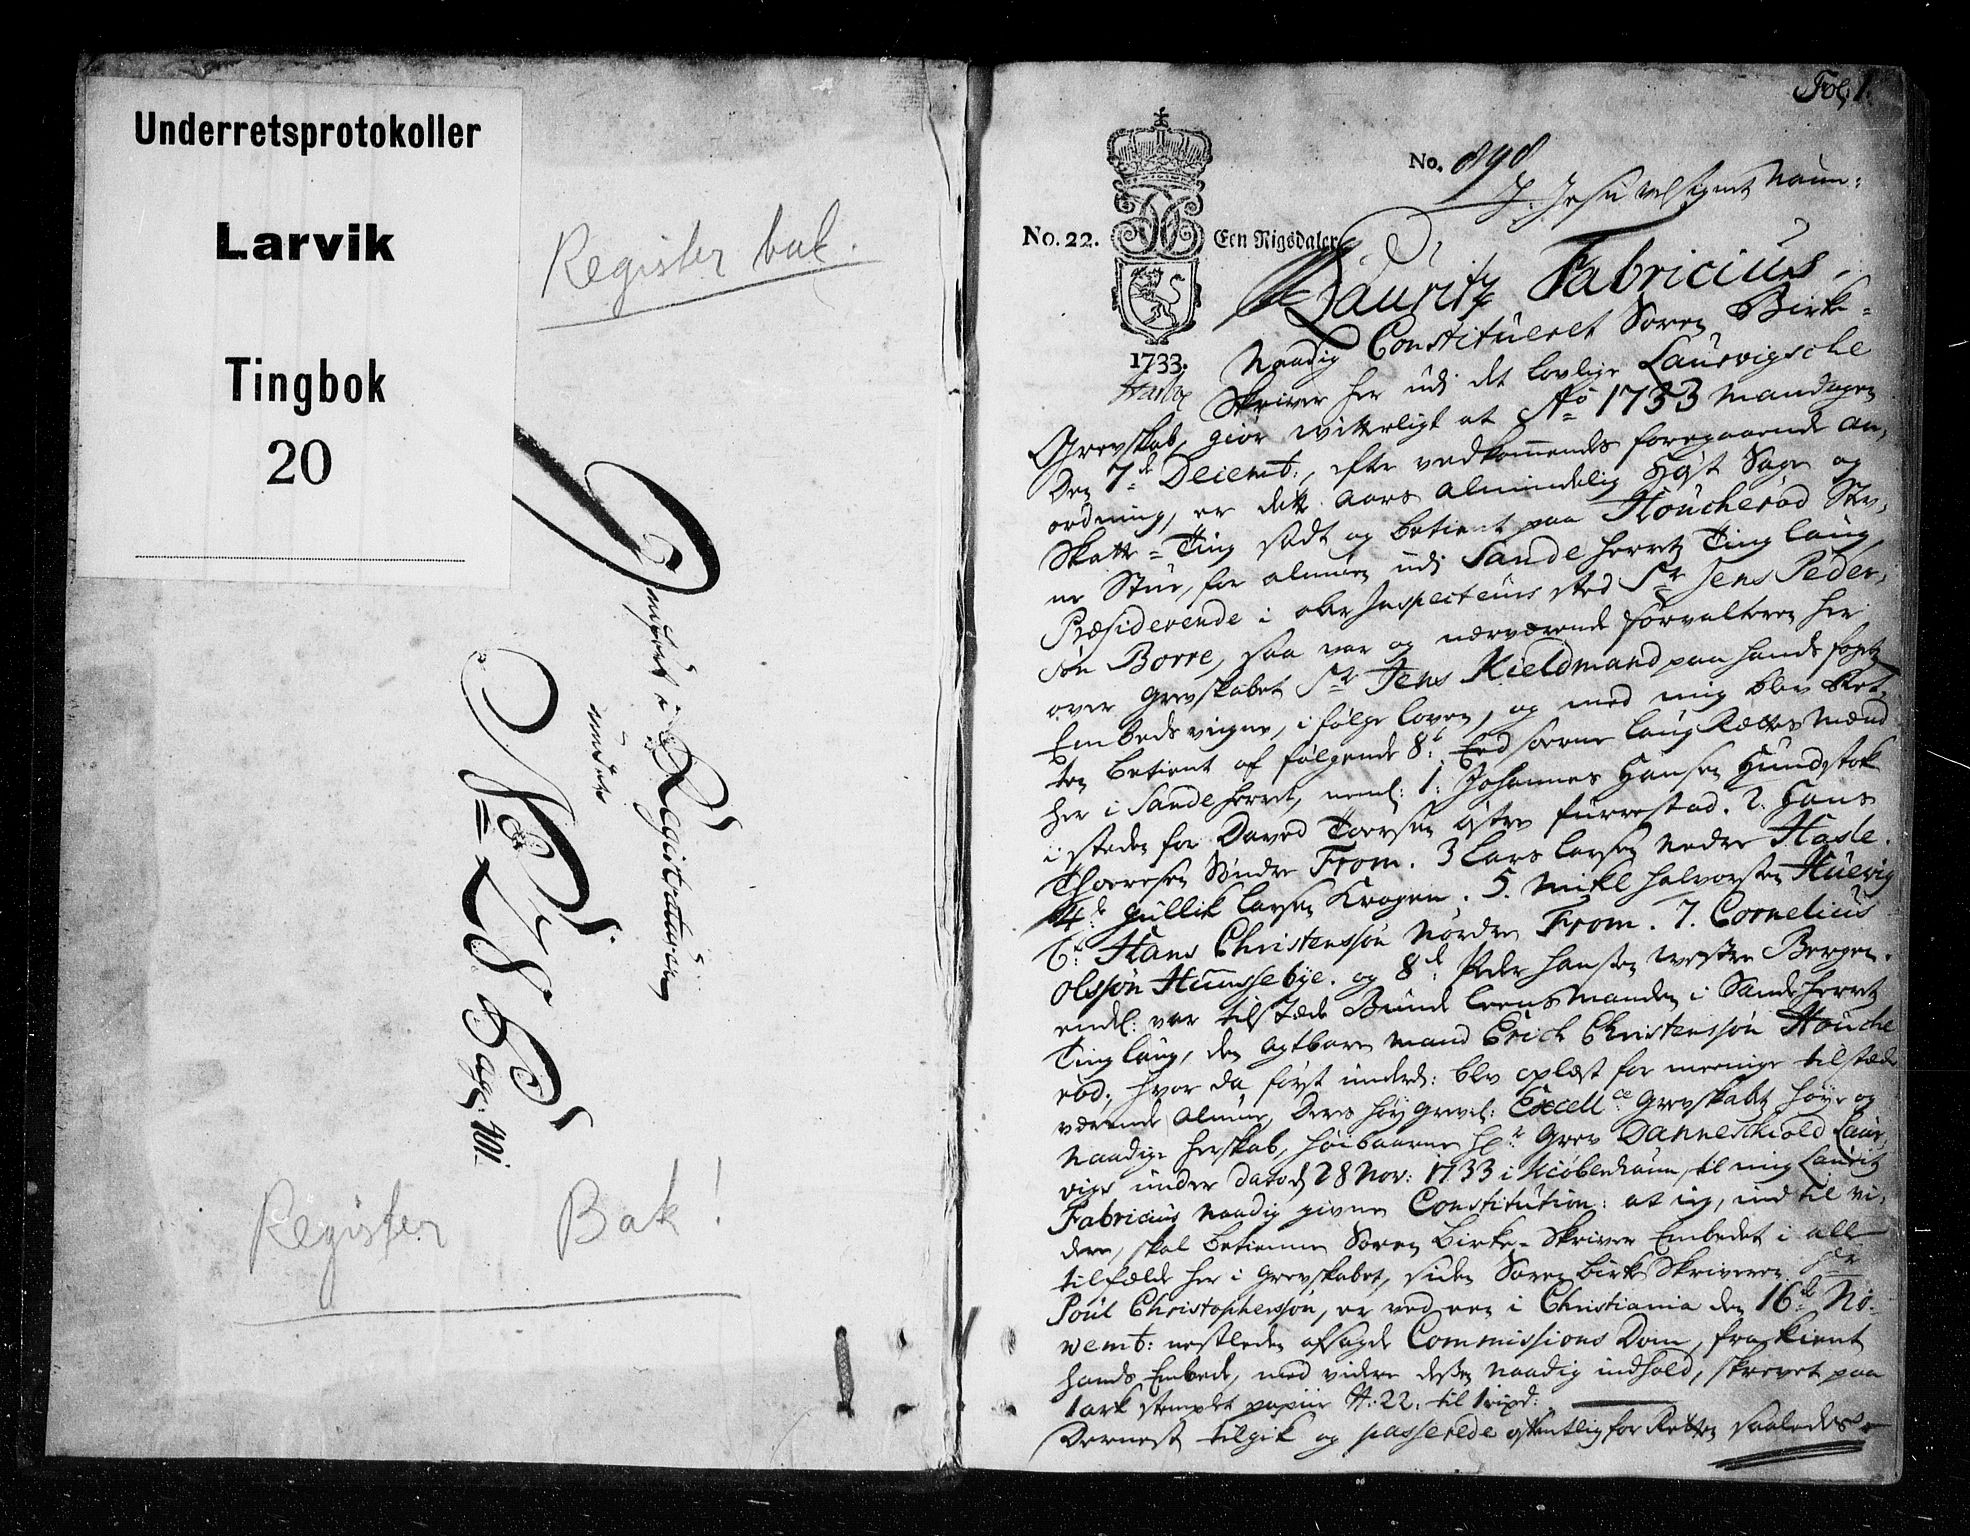 Underretsprotokoller
Larvik
Tingbok
20
Register bak.
Indført i Registraturen
under
No 28 Pag: 401.
Register Bak!
Fol: 1.
No. 898
J: Jesu Velsignet Naun:
No. 22. Een Rigsdaler
1733.
Lauritz Fabricius,
Naadig Constitueret Soren Birke=
Skriver her udi det lovlige Laurvigsche
Grevskab, giør witterligt at Ao 1733 Mandagen
Den 7de Decemb:, efter vedkommendes foregaaende an,
ordning, er dette aars almindelig Høst Sage og
Skatte=Ting sadt og betient paa Houcherød Stev,
ne Stue, for almuen udj Sande herrets Ting laug,
Præsiderende i ober Inspecteurs sted Sr Jens Peder,
søn Borre, saa var og nærværende Forvalteren her
over Grevskabet Sr Jens Kieldmand paa hands fogets
Embeds vegne, i følge loven, og med mig blev Ret,
ten betient af følgende 8te Eed soerne laug Rættes Mænd
her i Sande herret, neml: 1: Johannes Hansen Hundstok
i steden for Daved Toersen østre furrestad. 2. Hans
Thoresen Søndre From. 3 Lars larsen Nedre Hasle.
4de Gullik larsen Kragen. 5. Mikel halvorsten Huevig
6te Hans Christenssøn Nordre From. 7. Cornelius
Olssøn Hunssebye. og 8de Peder hansen westre Bergen.
endel: var tilstæde Bunde leensmanden i Sande herret
Ting laug, den agtbare mand Erich Christenssøn Houche
rød, hvor da først underd: blev oplæst for meenige tilstæde
værende almue, Deris høy grevel: Excellce Grevskabets høye og
Naadige herskab, høibaarne hr Grev Danneschiold Laur,
vigs under dato 28 Nov: 1733 i Kiøbenhaun, til mig Lauritz
Fabricius naadig givne Constitution: at ieg, ind til vi,
dere, skal betienne Soren Birke=Skriver Embedet i alle
tilfælde her i grevskabet, siden Soren birke Skriveren Hr
Poul Christopherssøn, er ved een i Christiania den 16de No,
vemb: nestleden afsagde Commissions Dom, fra kient
hands Embede, med videre deßen naadig indhold, skrevet paa
1 ark stemplet papiir No: 22. til 1 rixd:
Dernest tilgik og passerede ofentlig for Retten saaledes